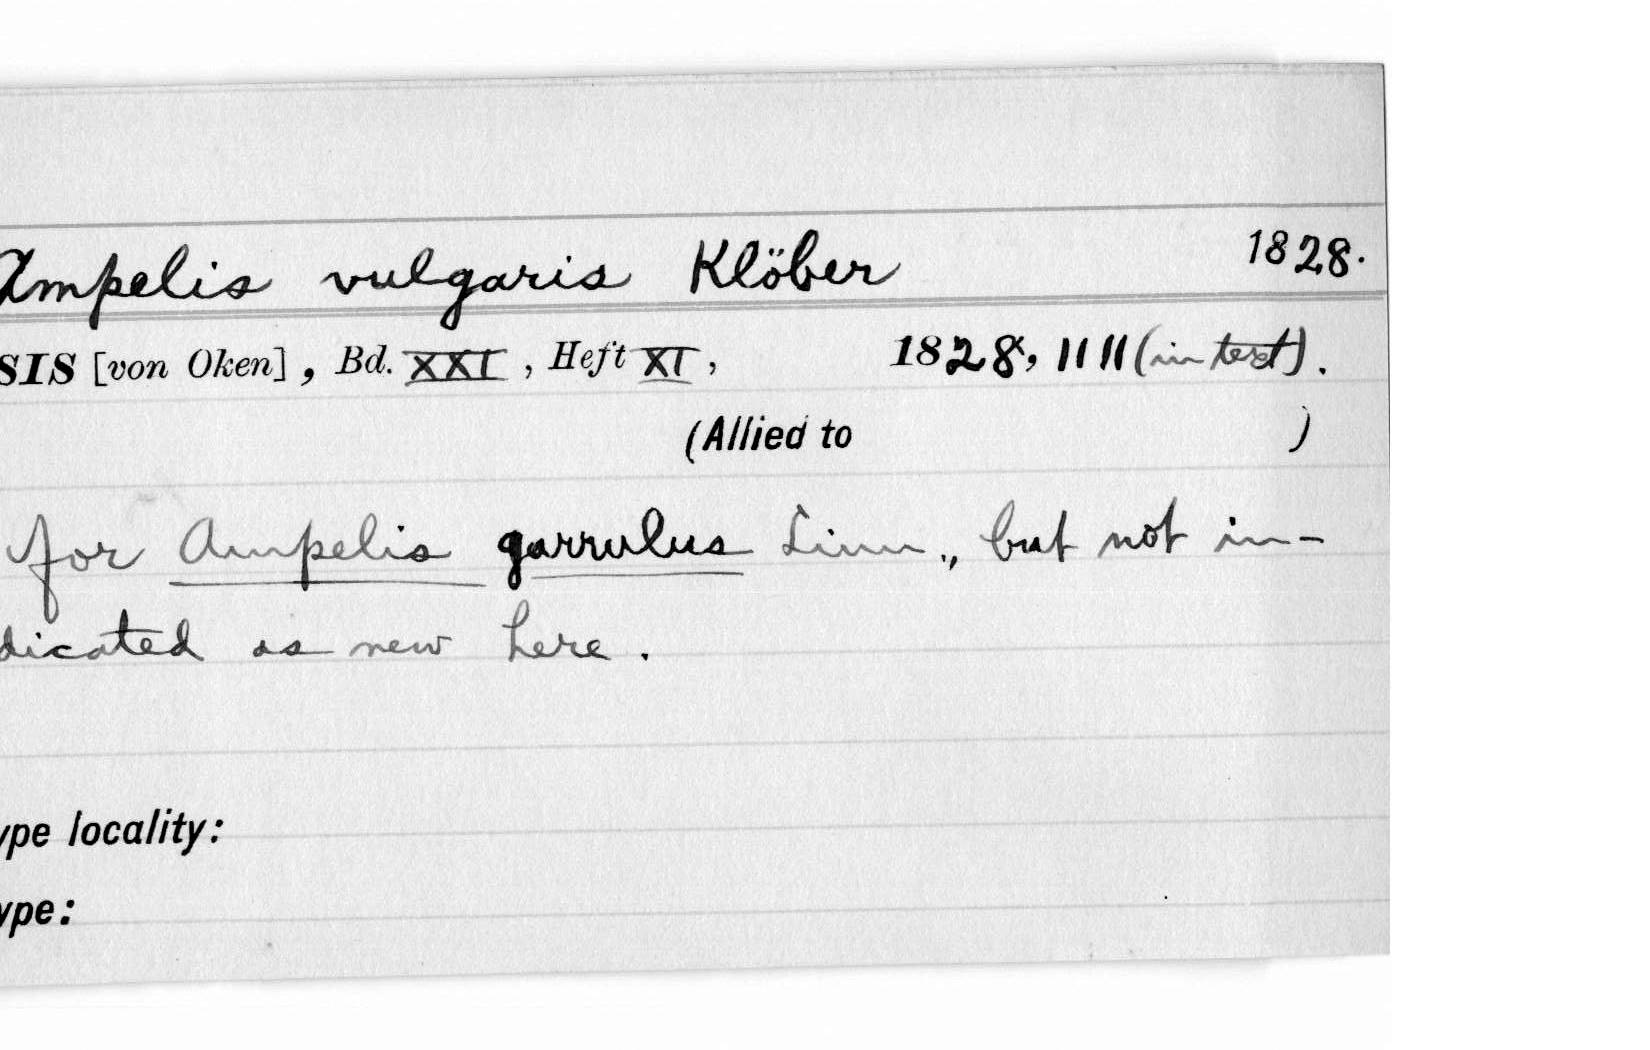 Ampelis vulgaris Klöber 1828.
SIS [von Oken], Bd. XXI, Heft XI, 1828, 1111 (in text).
(Allied to )
for Ampelis garrulus Linn., but not in-
dicated as new here.
ype locality:
ype: